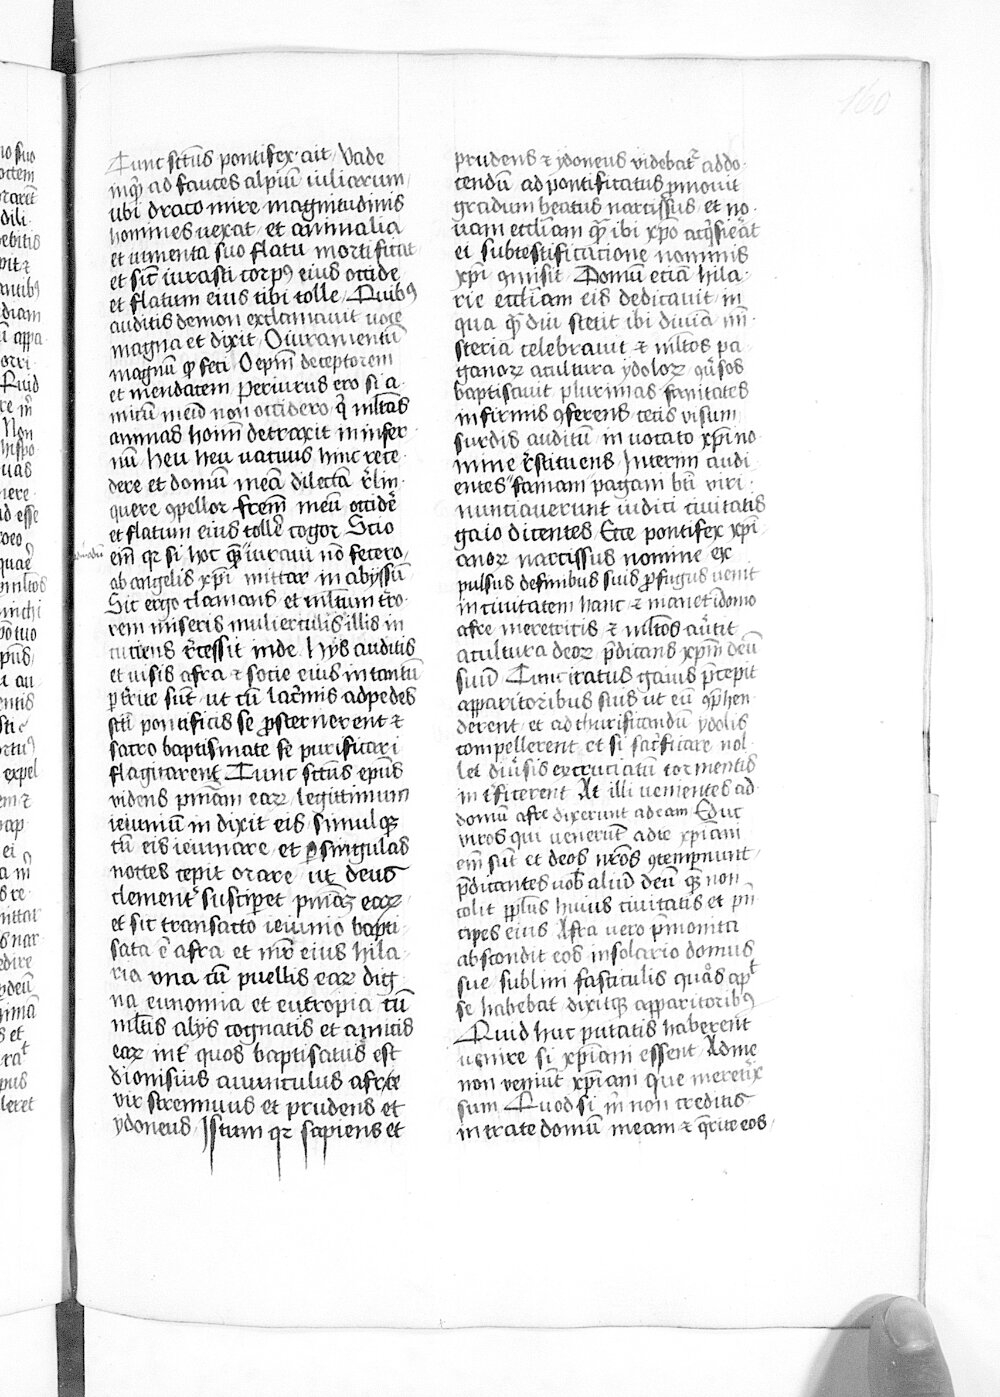 160
Tunc sctus pontifex ait / Vade
inqt ad fauces alpium iuliarum /
ubi draco mire magnitudinis
homines uexat / et animalia
et iumenta suo flatu mortificat
et sic iurasti corpus eius occide
et flatum eius tibi tolle / Quibus
auditis demon exclamauit uoce
magna et dixit / O iuramentum
magnum qd feci / O epm deceptorem
et mendacem / periurus ero si a
micum meum non occidero / qi mltas
animas homim detraxit in infer
num / heu heu uacuus hinc rece
dere et domum meam dilectam relin
quere compellor / frem meum occidere
et flatum eius tollere cogor / Scio
em qr si hoc qd iuraui no fecero /
ab angelis xpi mittar in abyssum
Sic ergo clamans et mltum terro
rem miseris mulierculis illis in
cuciens recessit inde / hijs auditis
et uisis afra et socie eius in tantum
perterrite sut / ut cum lacrimis ad pedes
scti pontificis se prosternerent et
sacro baptismate se purificari
flagitarent / Tunc sctus epus
videns pniam earum / legittimum
ieiunium indixit eis / simulque
cum eis ieiunare / et per singulas
noctes cepit orare / ut deus
clementer susciperet pniam earum /
et sic transacto ieiunio bapti
sata e afra et mr eius hila
ria una cum puellis earum dig
na eunomia et eutropia cum
mltis alijs cognatis et amicis
earum int quos baptisatus est
dionisius auunculus afre
vir strennuus et prudens et
ydoneus / Istum qr sapiens et
prudens et ydoneus videbatr ad do
cendum ad pontificatus pmouit
gradum beatus narcissus / et no
uam eccliam quam ibi xpo acqsierat
ei sub testificatione nominis
xpi comisit / Domum etia hila
rie eccliam eis dedicauit / in
qua qmdiu stetit ibi diuina mi
steria celebrauit et mltos pa
ganorum a cultura ydolorum conuersos
baptisauit / plurimas sanitates
infirmis conferens / cecis visum
surdis auditum / inuocato xpi no
mine restituens / Interim audi
entes famam pagani bti viri /
nunciauerunt iudici ciuitatis
gaio dicentes / Ecce pontifex xpi
anorum narcissus nomine ex
pulsus de finibus suis profugus uenit
in ciuitatem hanc et manet i domo
afre meretricis et mltos auertit
a cultura deorum predicans xpm deum
suum / Tunc iratus gaius precepit
apparitoribus suis ut eum comprehen
derent / et ad thurificandum ydolis
compellerent / et si sacrificare nol
let diuersis excruciatum tormentis
interficerent / At illi uenientes ad
domum afre dixerunt ad eam / Educ
viros qui uenerunt ad te / xpiani
em sunt et deos nros contempnunt
predicantes uob alium deum quem non
colit ppls huius ciuitatis et prin
cipes eius / Afra uero premonita
abscondit eos in solario domus
sue sub lini fasciculis quos apd
se habebat / dixitque apparitoribus
Quid huc putatis haberent
uenire si xpiani essent / Ad me
non veniunt xpiani que meretrix
sum / Quod si m non creditis
intrate domum meam et querite eos /